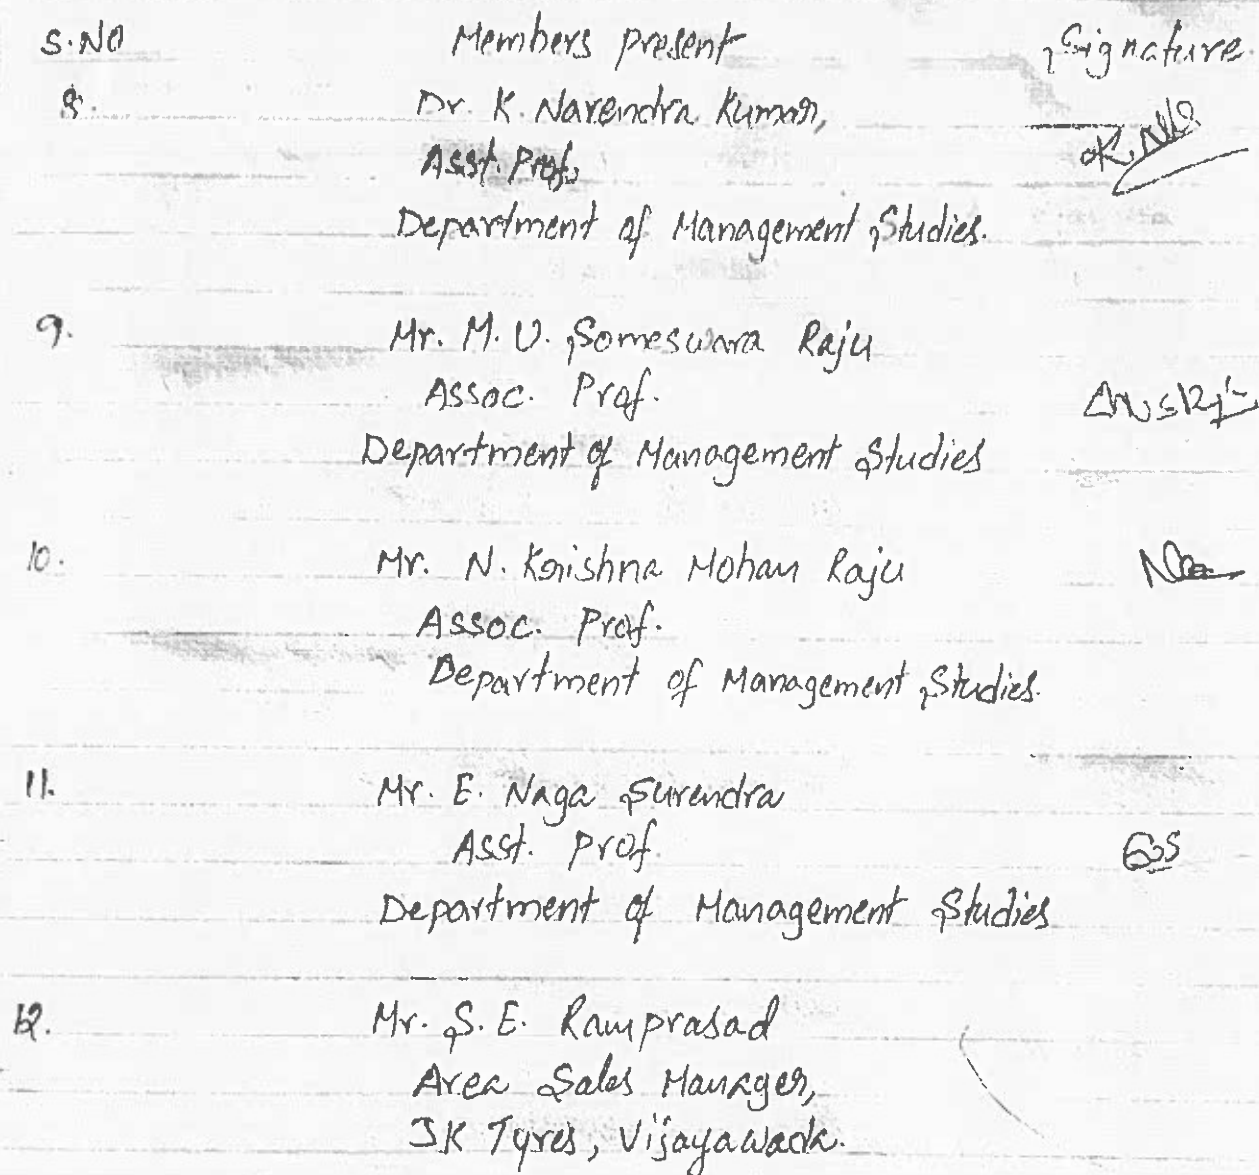 S.No Members present Signature
8. Dr. K. Narendra Kumar,
Asst. Prof.
Department of Management Studies.
9. Mr. M. V. Someswara Raju
Assoc. Prof.
Department of Management Studies
10. Mr. N. Krishna Mohan Raju
Assoc. Prof.
Department of Management Studies.
11. Mr. E. Naga Surendra
Asst. Prof.
Department of Management Studies
12. Mr. S. E. Ramprasad
Area Sales Manager,
JK Tyres, Vijayawada.